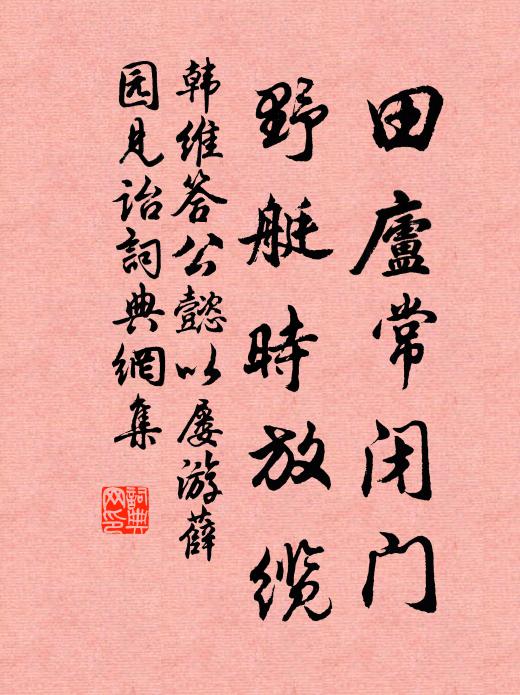 田廬常闭门
野艇時放缆
韩维答公懿以屡游薛
园见诒詞典網集
詞典
网印